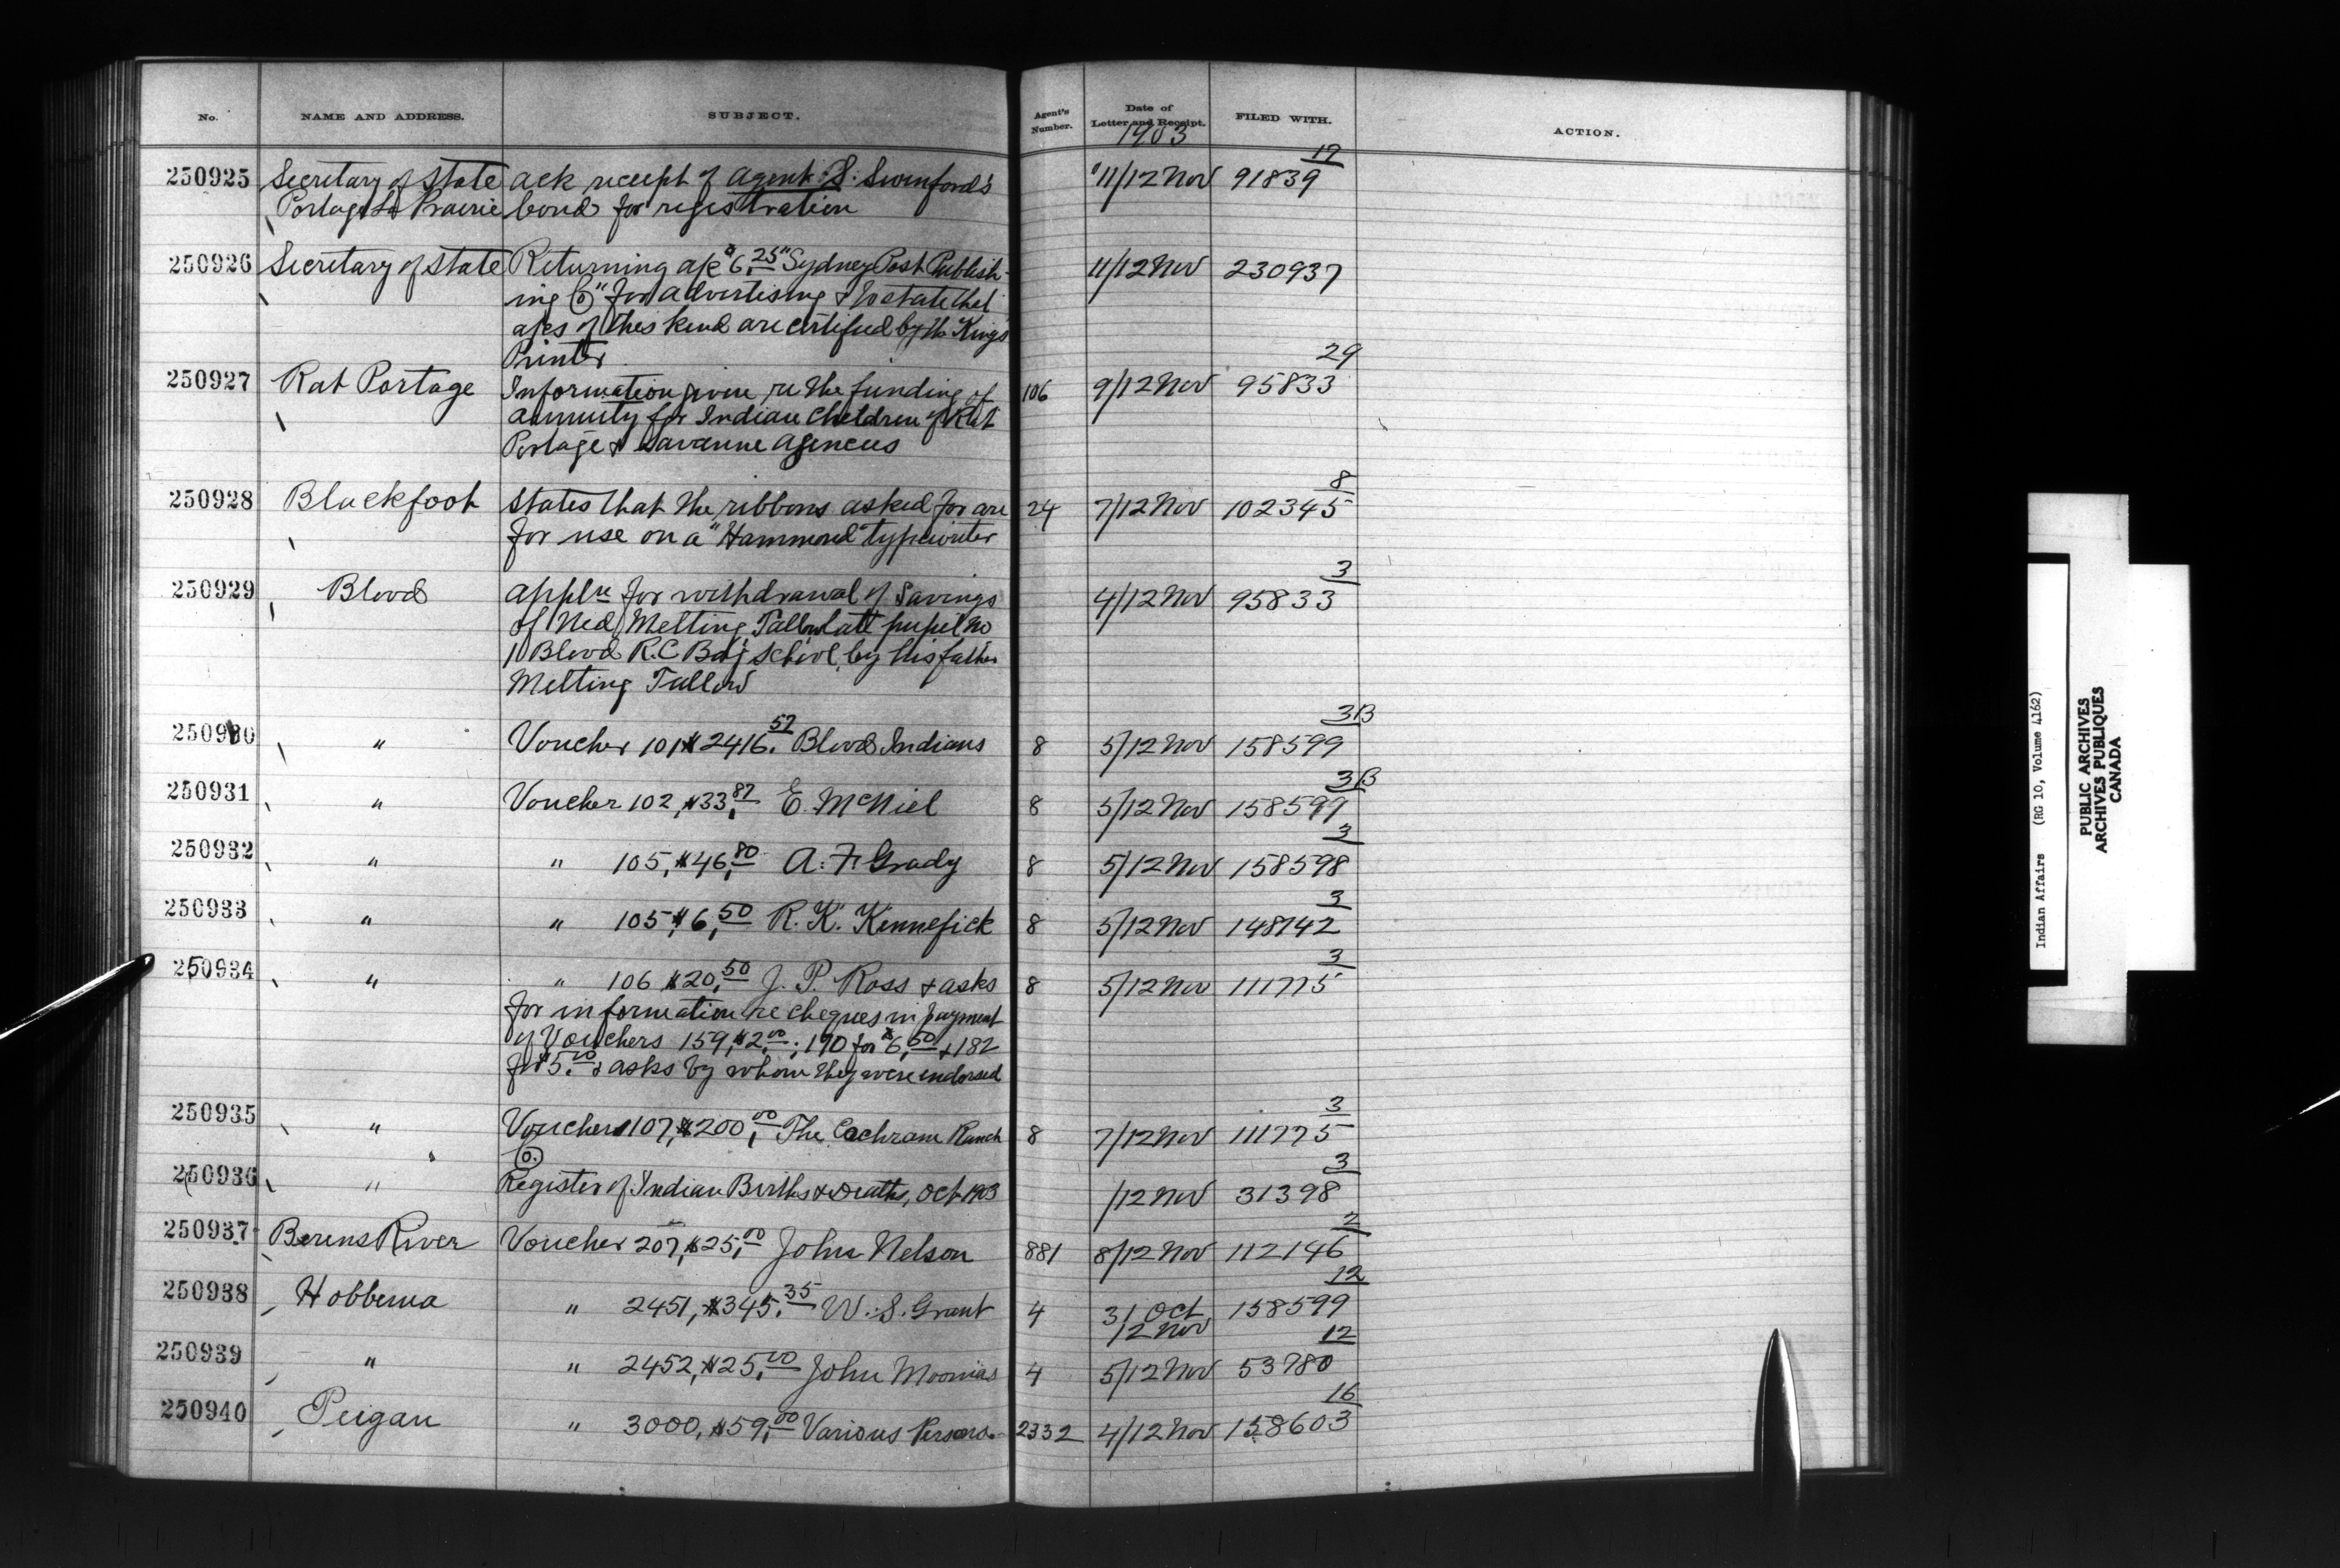 No. NAME AND ADDRESS. SUBJECT. Agent's Number. Date of Letter and Receipt. FILED WITH. ACTION.
1903
17
250925 Secretary of State Ack receipt of Agent S. Swinford's 11/12 Nov 91839
Portage La Prairie bond for registration
250926 Secretary of State Returning a/c $6.25 "Sydney Post Publish- 11/12 Nov 230937
ing Co" for advertising & to state that
a/cs of this kind are certified by the Kings
Printer
29
250927 Rat Portage Information given re the funding of 106 9/12 Nov 95833
annuity for Indian Children of Rat
Portage & Savanne Agencies
8
250928 Blackfoot States that the ribbons asked for are 24 7/12 Nov 102345
for use on a "Hammond" typewriter
3
250929 Blood Appln for withdrawal of Savings 4/12 Nov 95833
of Ned Melting Tallow late pupil No
11 Blood R.C Bdg School, by his father
Melting Tallow
3B
250930 " Voucher 101 $2416.57 Blood Indians 8 5/12 Nov 158599
3B
250931 " Voucher 102, $33.87 E. McNiel 8 5/12 Nov 158599
3
250932 " " 105, $46.80 A. F. Grady 8 5/12 Nov 158598
3
250933 " " 105, $6.50 R. K. Kennefick 8 5/12 Nov 148742
3
250934 " " 106 $20.50 J. P. Ross & asks 8 5/12 Nov 111775
for information re cheques in payment
of Vouchers 159, $2.00; 170 for $6.50 & 182
for $5.00 & asks by whom they were endorsed
3
250935 " Voucher 107, $200.00 The Cochrane Ranch 8 7/12 Nov 111775
Co.
3
250936 " Register of Indian Births & Deaths, Oct 1903 /12 Nov 31398
2
250937 Berens River Voucher 207, $25.00 John Nelson 881 8/12 Nov 112146
12
250938 Hobbema " 2451, $345.35 W. S. Grant 4 31 Oct 158599
12 Nov
12
250939 " " 2452, $25.00 John Moonias 4 5/12 Nov 53780
16
250940 Peigan " 3000, $59.00 Various Persons 2332 4/12 Nov 158603
Indian Affairs (RG 10, Volume 4162)
PUBLIC ARCHIVES
ARCHIVES PUBLIQUES
CANADA